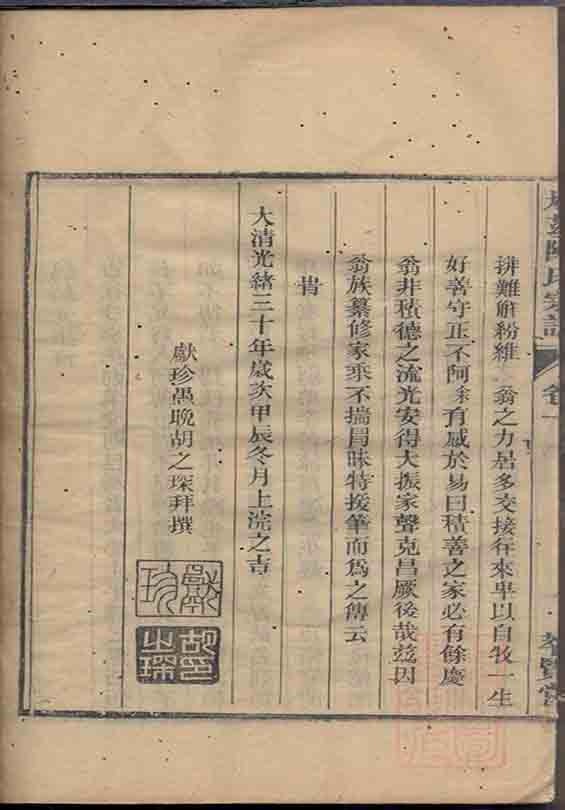 陳氏家譜 卷一
排難解紛維 翁之力居多交接往來卑以自牧一生
好善守正不阿余有感於易曰積善之家必有餘慶
翁非積德之流光安得大振家聲克昌厥後哉茲因
翁族纂修家乘不揣冒昧特援筆而為之傳云
旹
大清光緒三十年歲次甲辰冬月上浣之吉
獻珍愚晚胡之琛拜撰
獻珍
胡之琛印